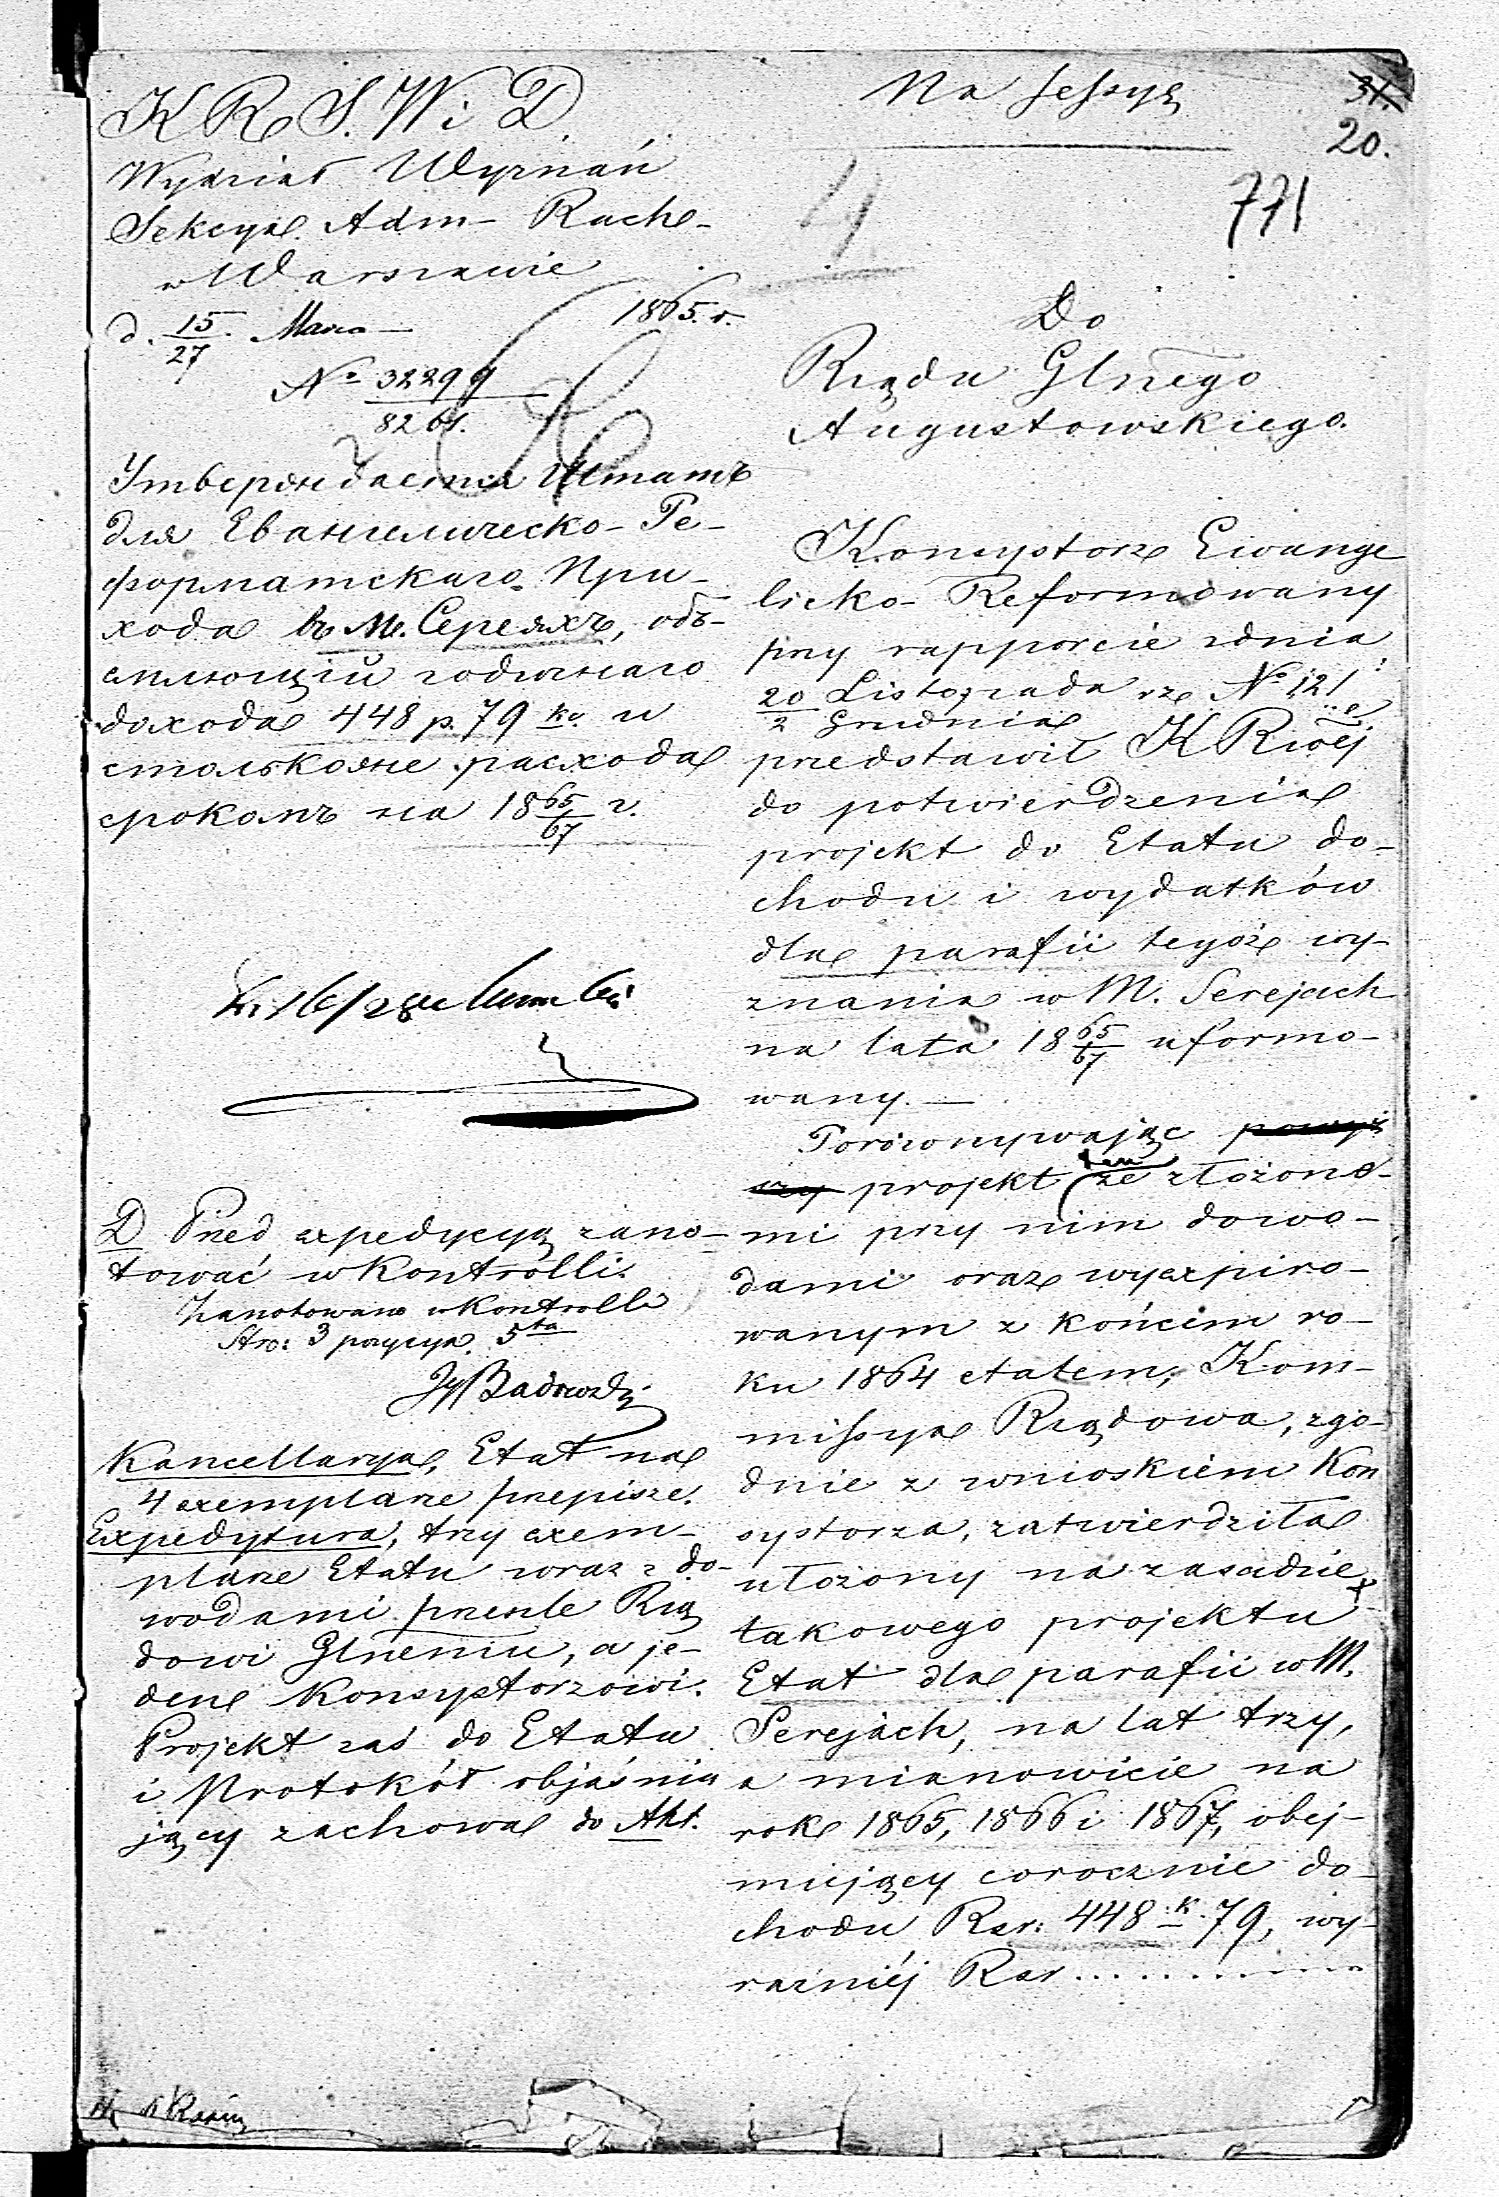 K R S. W i D.
Wydział Wyznań
Sekcya Adm- Rach-
w Warszawie
d. 15/27 Marca 1865. r.
No 32299/8261.
Утверждается Штатъ
для Евангелическо-Ре-
форматскаго При-
хода въ М. Сереяхъ, объ-
емлющій годичнаго
дохода 448 р. 79 ко. и
столькоже расхода
срокомъ на 18 65/67 г.
D Przed expedycyą zano-
tować w Kontrolli.
Zanotowano w Kontrolli
Str: 3 pozycya. 5ta
Kancellarya, Etat na
4 exemplarze przepisze.
Expedytura, trzy exem-
plarze Etatu wraz z do-
wodami prześle Rzą
dowi Glnemu, a je-
den Konsystorzowi.
Projekt zaś do Etatu
i Protokół objaśnia
jący zachowa do Akt.
Na sessyą
31.
20.
771
Do
Rządu Glnego
Augustowskiego.
Konsystorz Ewange
licko-Reformowany
przy rapporcie z dnia
20/2 Listopada/Grudnia rz No 121
przedstawił K Rwéj
do potwierdzenia
projekt do Etatu do-
chodu i wydatków
dla parafii tegoż wy-
znania w M. Serejach
na lata 18 65/67 uformo-
wany. —
Porównywając powyż
szy projekt ten ze złożone-
mi przy nim dowo-
dami oraz wyexpiro-
wanym z końcem ro-
ku 1864 etatem, Kom-
missya Rządowa, zgo-
dnie z wnioskiem Kon
systorza, zatwierdziła
ułożony na zasadzie
takowego projektu
Etat dla parafii w M.
Serejach, na lat trzy,
a mianowicie na
rok 1865, 1866 i 1867, obej-
mujący corocznie do-
chodu Rsr: 448 k. 79, wy-
raźniéj Rsr ............